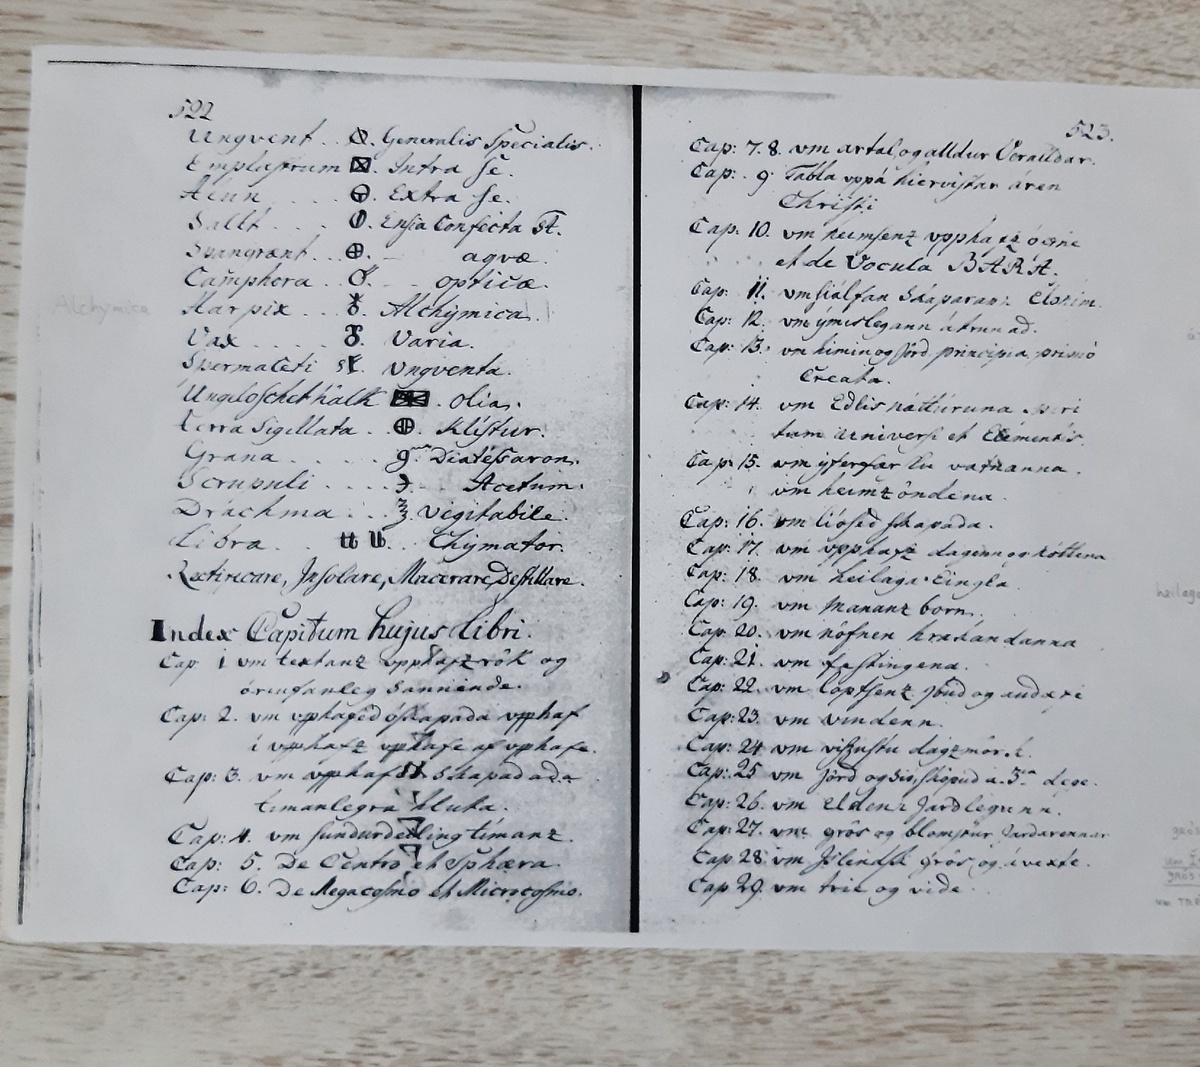 522
Ungvent . . Generalis Specialis.
Emplastrum . Intra se.
Alun . . . . Extra se.
Sallt . . . . Ensia Confecta
Spangrænt . . . aqvæ.
Camphora . . . opticæ.
Harpix . . . Alchymica.
Alchymica
Vax . . . . Varia.
Spermaceti . Ungventa.
olia.
Terra Sigillata . . Klistur.
Grana . . . . Diatessaron.
Scrupuli . . . Acetum.
Drachma . . . vegitabile.
Libra . . ℔ . Chymator.
Rectificare, Insolare, Macerare, Destillare.
Index Capitum hujus Libri.
Cap 1 vm textans vpphafz rök og
sannende.
Cap: 2. vm vphafed óskapada vpphaf
i vpphafz vphafe af vphafe.
Cap: 3. vm
timanlegra hluta.
Cap: 4. vm sundurdeiling timanz.
Cap: 5. De Centro et Sphæra.
Cap: 6. De Megacosmo et Microcosmo.
523.
Cap: 7. 8. vm artal og alldur Veralldar.
Cap: 9. Tabla vppá hiervistar áren
Christi
Cap: 10. vm heimsenz vpphafz
et de Vocula BARA.
Cap: 11. vm siálfan Skaparanz
Cap: 12. vm ýmislegann átrunad.
Cap: 13. vm himin og jörd, principia primò
Creata.
Cap: 14. vm Edlis náttúruna
universi et Elementis
Cap: 15. vm yferfar vatnanna.
vm heimz öndena.
Cap: 16. vm liósed skapada.
Cap: 17. vm vpphafz dagenn og nóttena
Cap: 18. vm heilaga eingla
Cap: 19. vm mananz born.
Cap: 20. vm nöfnen hrærandanna
Cap: 21. vm festingena.
Cap: 22. vm loptsenz jbud og
Cap: 23. vm vindenn.
Cap: 24 vm dagz
Cap: 25 vm jörd og sio, sköpud a. 3ia dege.
Cap: 26. vm eldenz jardlegunn.
Cap: 27. vm grös og blomstur jardarennar
Cap 28: vm Jslendsk grös og ávexte.
Cap 29. vm trie og vide